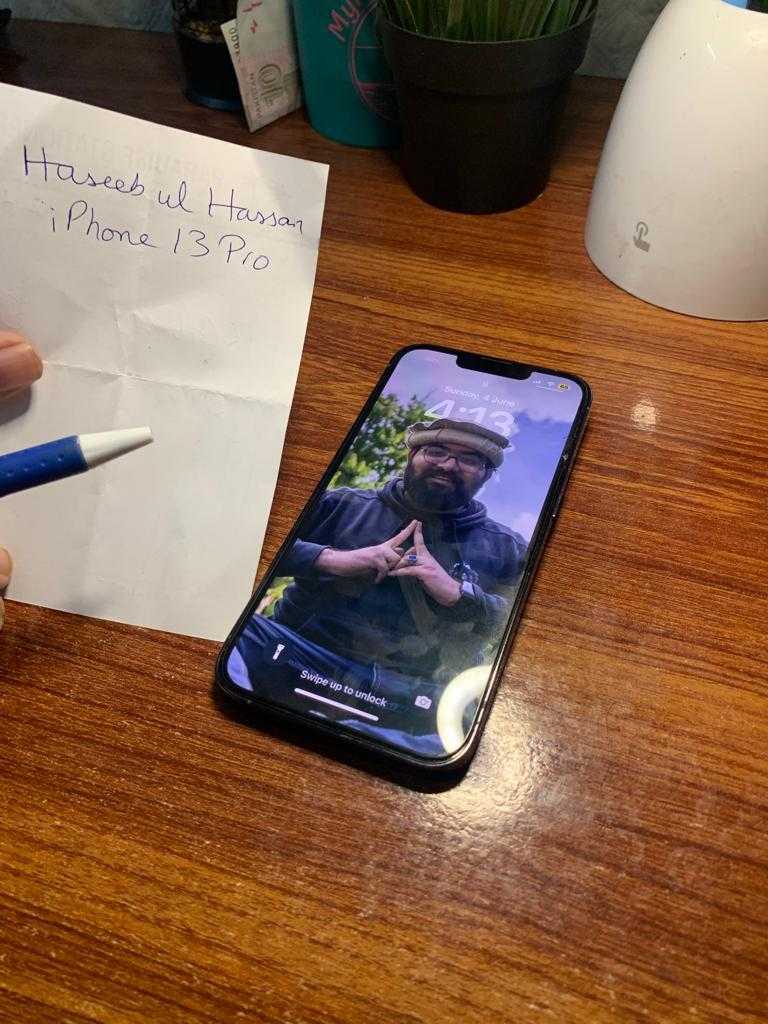 Haseeb ul Hassan
iPhone 13 Pro
My
Sunday, 4 June
4:13
Swipe up to unlock